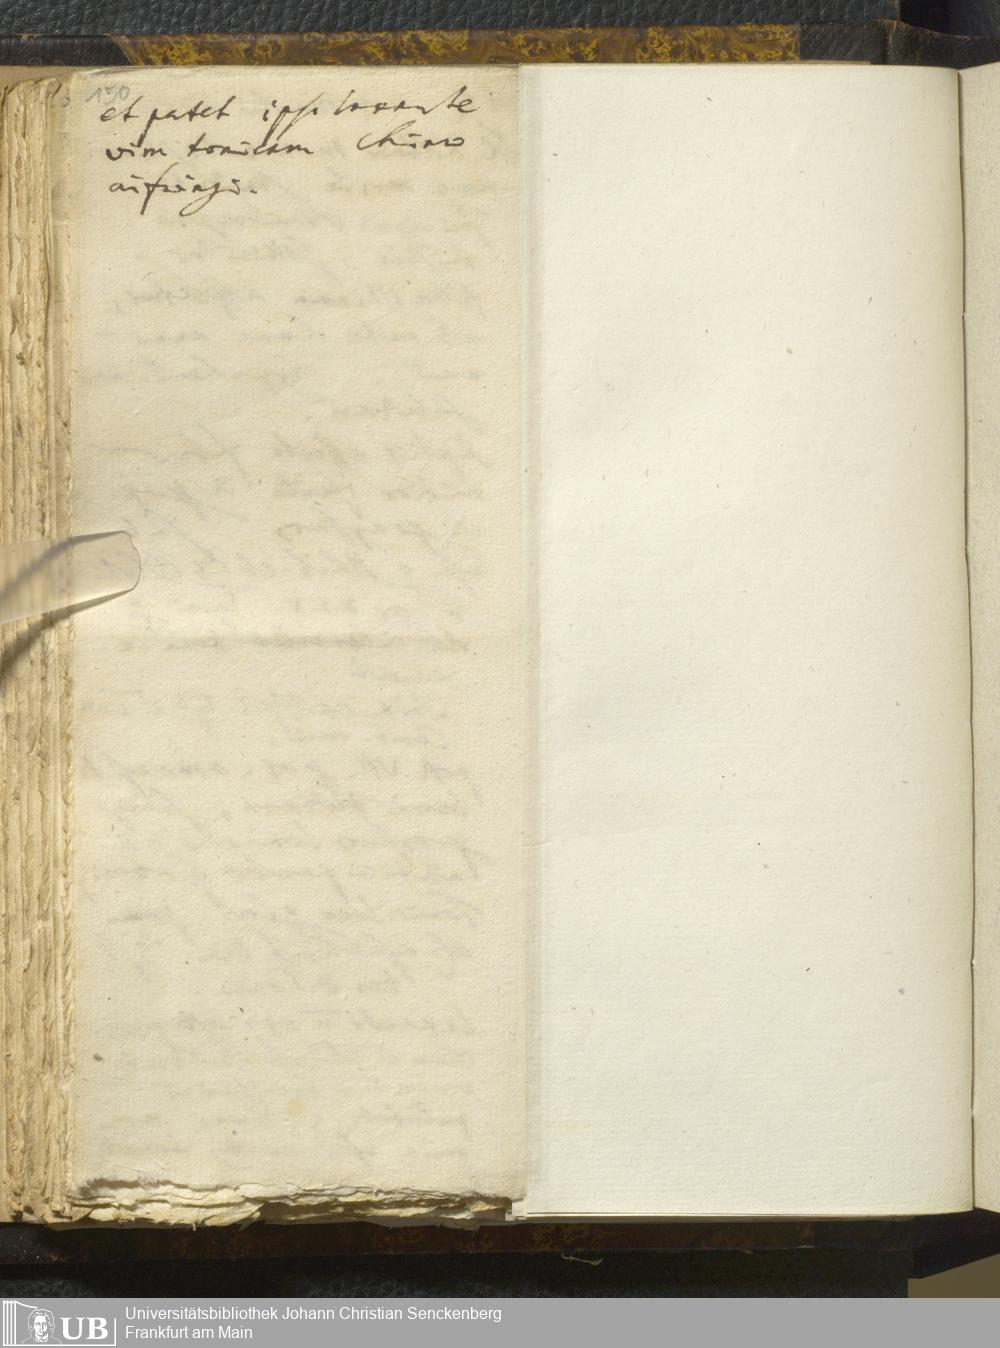 150
et patet ipso laxante
vim tonicam
infringi.
UB Universitätsbibliothek Johann Christian Senckenberg
Frankfurt am Main